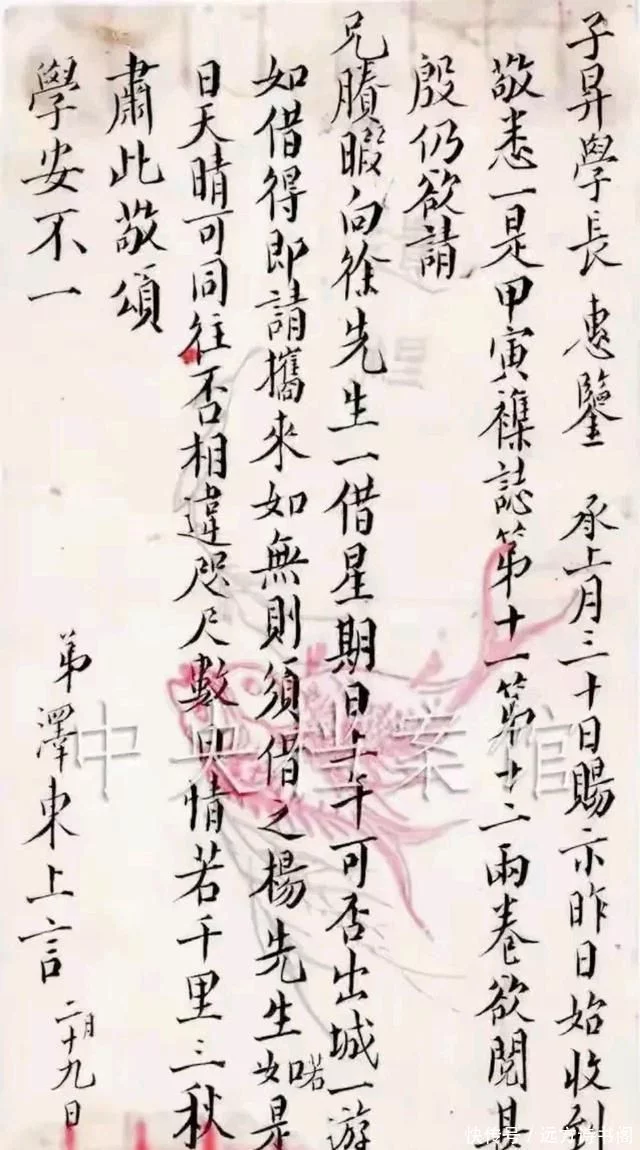 子昇學長 惠鑒 承上月三十日賜示昨日始收到
敬悉一是甲寅襍誌第十一第十二兩卷欲閱甚
殷仍欲請
兄賸暇向徐先生一借星期日上午可否出城一游
如借得即請攜來如無則須借之楊先生是
日天晴可同往否相違咫尺數日情若千里三秋
肅此敬頌
學安不一
弟澤東上言 二月十九日
中央档案馆
快传号 / 远方诗书阁